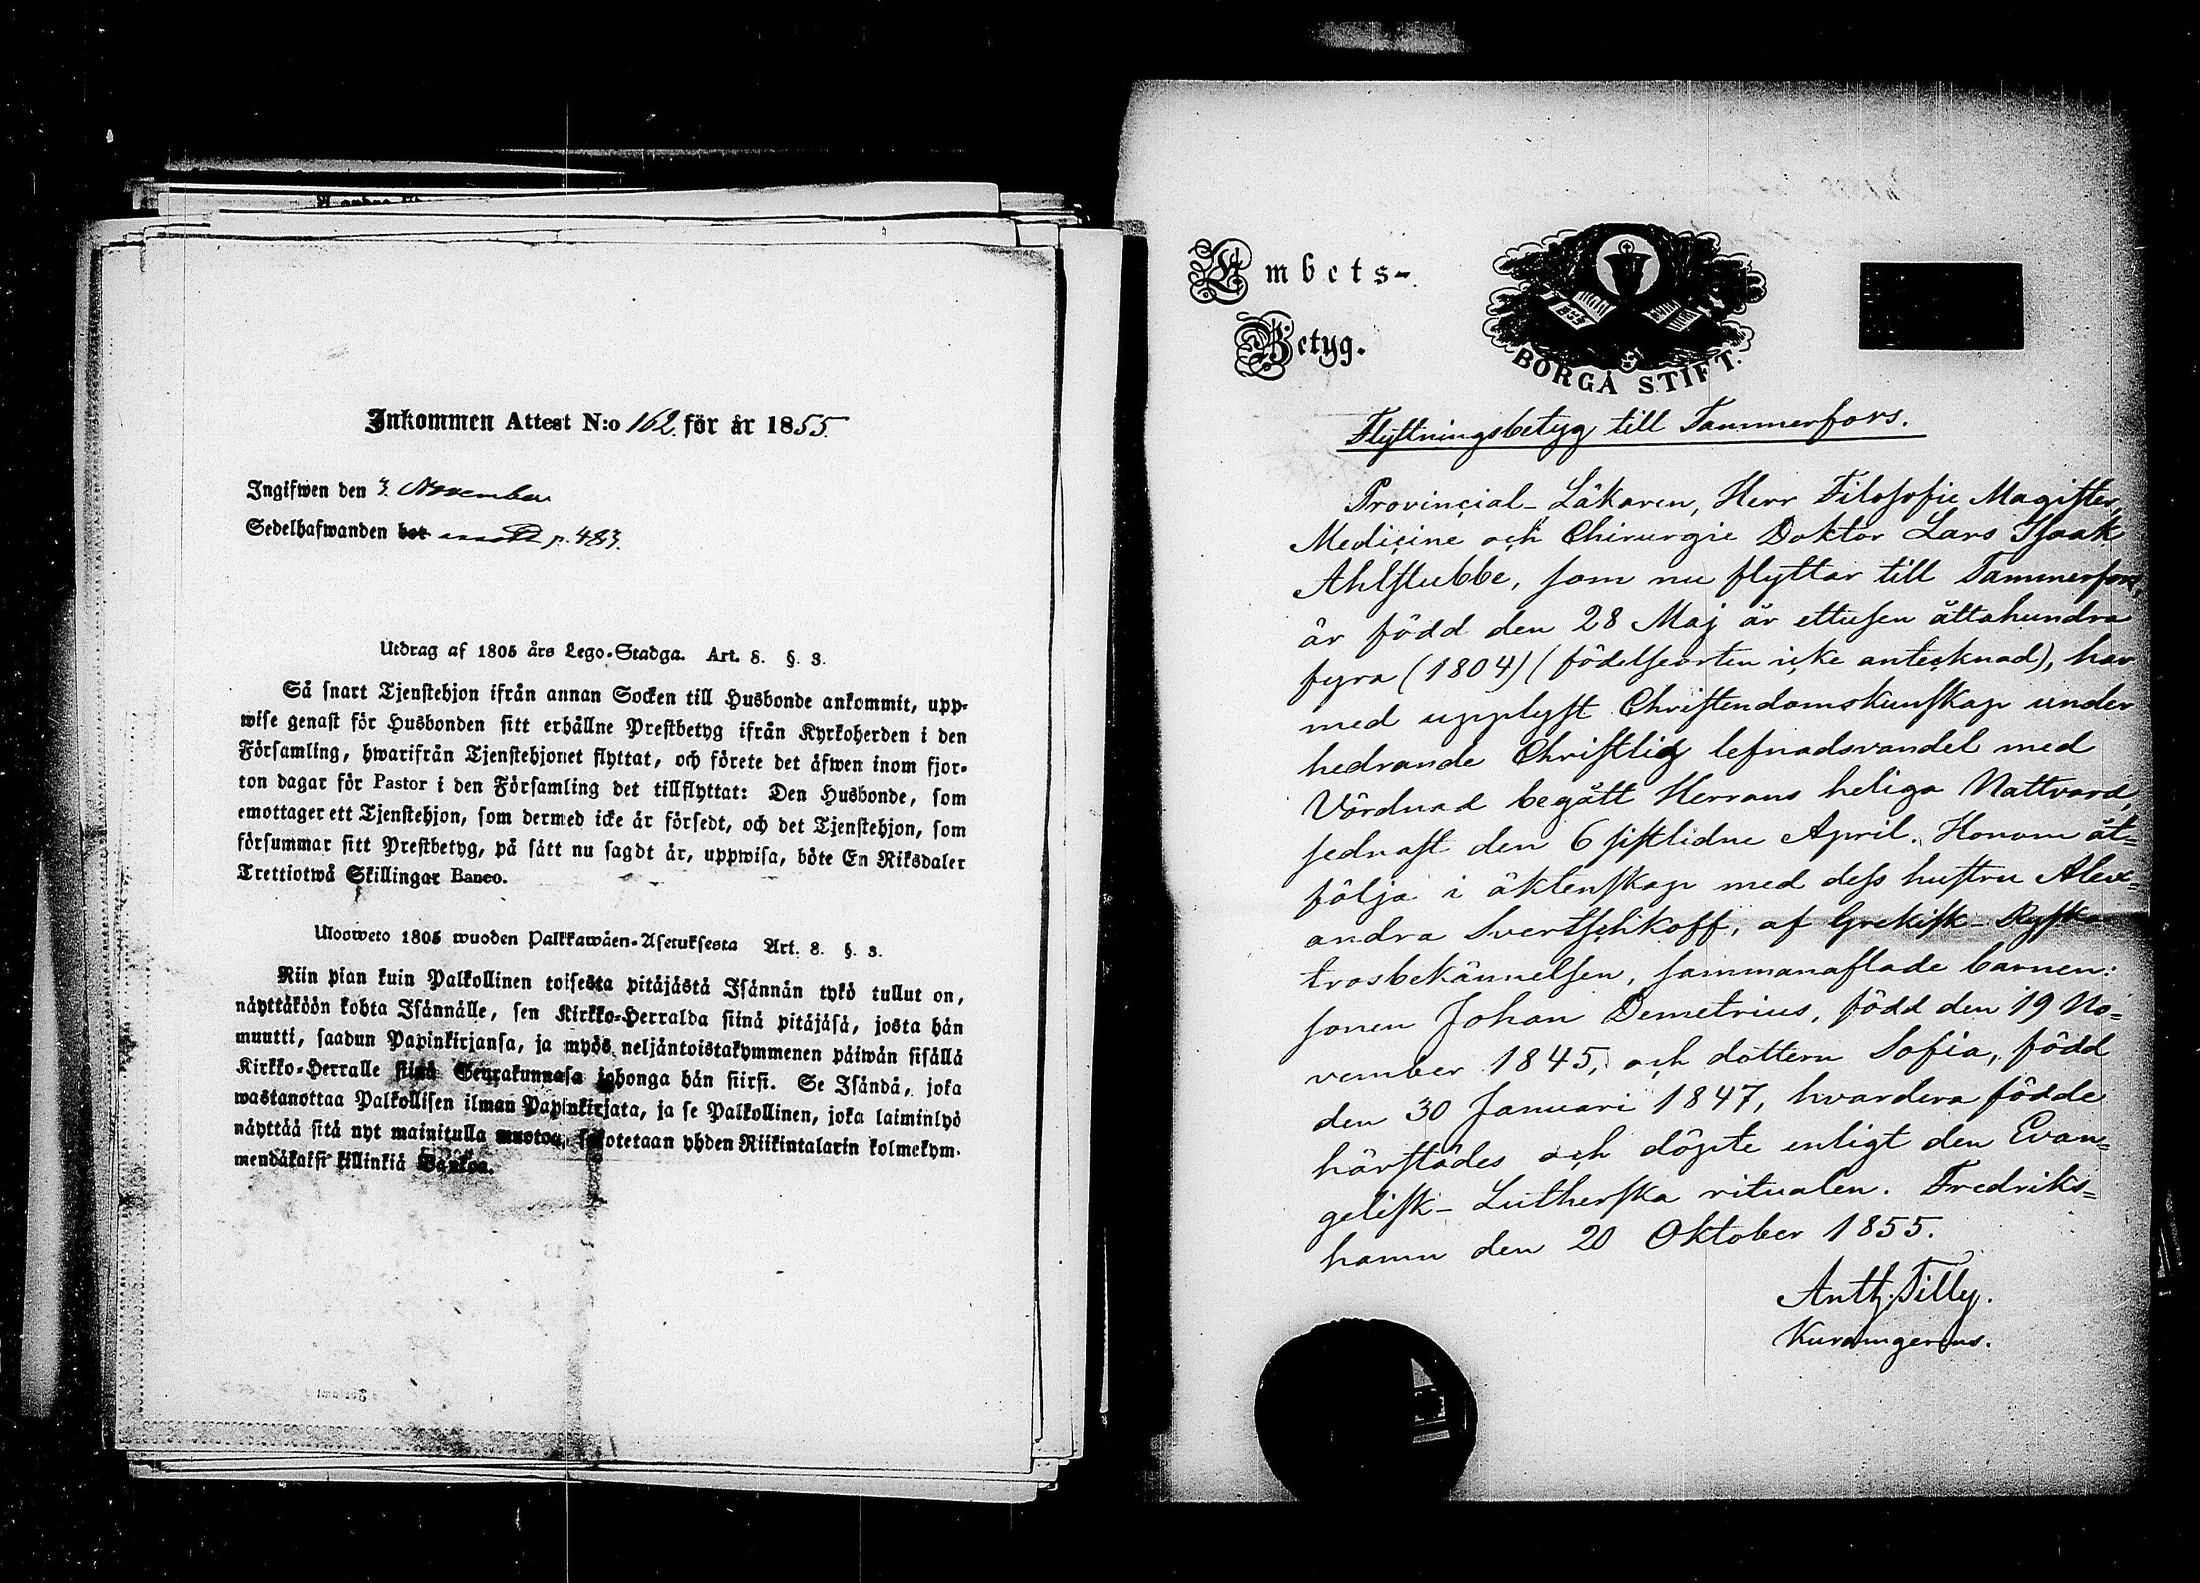 Inkommen Attest N:o 162. för år 1855.
Ingifwen den 3. November
Sedelhafwanden bor p. 483.
Utdrag af 1805 års Lego-Stadga. Art. 8. §. 3.
Så snart Tjenstehjon ifrån annan Socken till Husbonde ankommit, upp-
wise genast för Husbonden sitt erhållne Prestbetyg ifrån Kyrkoherden i den
Församling, hwarifrån Tjenstehjonet flyttat, och förete det äfwen inom fjor-
ton dagar för Pastor i den Församling det tillflyttat: Den Husbonde, som
emottager ett Tjenstehjon, som dermed icke är försedt, och det Tjenstehjon, som
försummar sitt Prestbetyg, på sätt nu sagdt är, uppwisa, böte En Riksdaler
Trettiotwå Skillingar Banco.
Ulosweto 1805 wuoden Palkkawäen-Asetuksesta Art. 8. §. 3.
Niin pian kuin Palkollinen toisesta pitäjästä Isännän tykö tullut on,
näyttäköön kohta Isännälle, sen Kirkko-Herralda siinä pitäjäsä, josta hän
muutti, saadun Papinkirjansa, ja myös neljäntoistakymmenen päiwän sisällä
Kirkko-Herralle siinä Seurakunnasa johonga hän siirsi. Se Isändä, joka
wastanottaa Palkollisen ilman Papinkirjata, ja se Palkollinen, joka laiminlyö
näyttää sitä nyt mainitulla muotoa, sakotetaan yhden Riikintalarin kolmekym-
mendäkaksi killinkiä Bankoa.
Embets-
Betyg.
BORGÅ STIFT.
Flyttningsbetyg till Tammerfors.
Provincial-Läkaren, Herr Filosofie Magister,
Medicine och Chirurgie Doktor Lars Isaak
Ahlstubbe, som nu flyttar till Tammerfors,
är född den 28 Maj år ettusen åttahundra
fyra (1804) (födelseorten icke antecknad), har
med upplyst Christendomskunskap under
hedrande Christlig lefnadsvandel med
Vördnad begått Herrans heliga Nattvard,
sednast den 6 sistlidne April. Honom åt=
följa i äktenskap med dess hustru Alex=
andra Svertschkoff, af Grekisk-Ryska
trosbekännelsen, sammanaflade barnen:
sonen Johan Demetrius, född den 19 No=
vember 1845, och dottern Sofia, född
den 30 Januari 1847, hvardera födde
härstädes och döpte enligt den Evan=
gelisk-Lutherska ritualen. Fredriks=
hamn den 20 Oktober 1855.
Anth. Tilly.